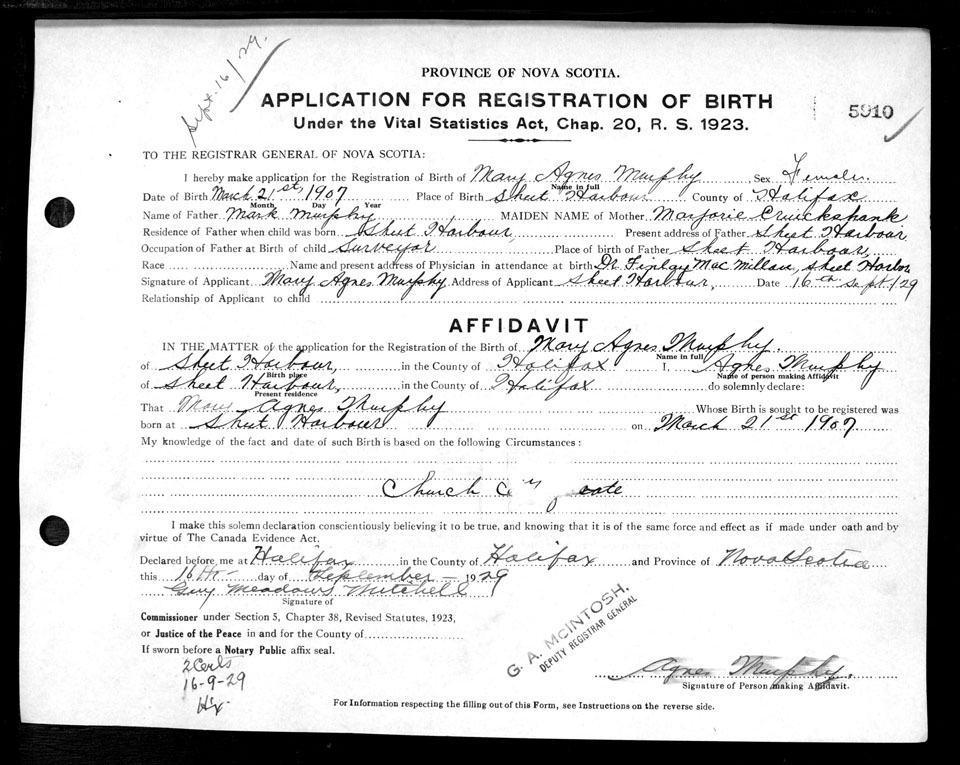 Sept. 16/29.
PROVINCE OF NOVA SCOTIA.
APPLICATION FOR REGISTRATION OF BIRTH
5910
Under the Vital Statistics Act, Chap. 20, R. S. 1923.
TO THE REGISTRAR GENERAL OF NOVA SCOTIA:
I hereby make application for the Registration of Birth of Mary Agnes Murphy Sex Female.
Name in full
Date of Birth March 21st, 1907 Place of Birth Sheet Harbour County of Halifax
Month Day Year
Name of Father Mark Murphy MAIDEN NAME of Mother Marjorie Cruickshank
Residence of Father when child was born Sheet Harbour, Present address of Father Sheet Harbour
Occupation of Father at Birth of child Surveyor Place of birth of Father Sheet Harbour,
Race Name and present address of Physician in attendance at birth Dr. Finlay MacMillan, Sheet Harbor
Signature of Applicant Mary Agnes Murphy Address of Applicant Sheet Harbour, Date 16th Sept/29
Relationship of Applicant to child
AFFIDAVIT
IN THE MATTER of the application for the Registration of the Birth of Mary Agnes Murphy.
Name in full
of Sheet Harbour, in the County of Halifax I, Agnes Murphy
Birth place Name of person making Affidavit
of Sheet Harbour, in the County of Halifax do solemnly declare:
Present residence
That Mary Agnes Murphy Whose Birth is sought to be registered was
born at Sheet Harbour on March 21st 1907
My knowledge of the fact and date of such Birth is based on the following Circumstances:
Church
I make this solemn declaration conscientiously believing it to be true, and knowing that it is of the same force and effect as if made under oath and by
virtue of The Canada Evidence Act.
Declared before me at Halifax in the County of Halifax and Province of Nova Scotia
this 16th day of September 1929
Guy Meadows Mitchell
Signature of
Commissioner under Section 5, Chapter 38, Revised Statutes, 1923,
or Justice of the Peace in and for the County of
If sworn before a Notary Public affix seal.
G. A. McINTOSH,
DEPUTY REGISTRAR GENERAL
2 Certs
16-9-29
Hx.
Agnes Murphy.
Signature of Person making Affidavit.
For Information respecting the filling out of this Form, see Instructions on the reverse side.